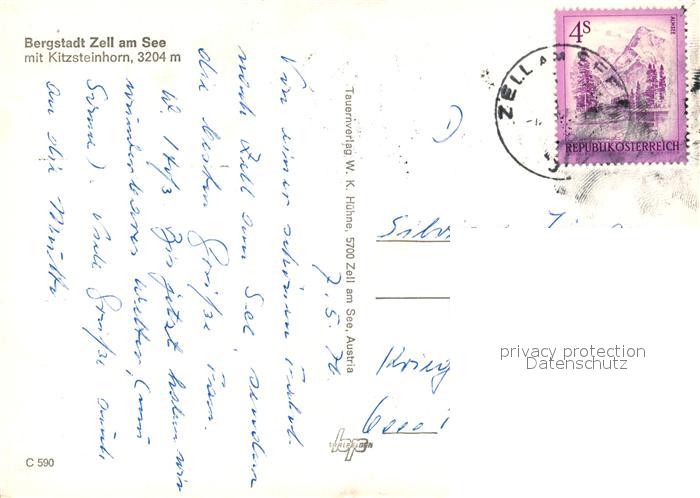 Bergstadt Zell am See
mit Kitzsteinhorn, 3204 m
7. 5. 76
Von einer schönen
nach Zell am See, senden
die besten Grüße
W. Bis jetzt haben wir
wunderbares Wetter, (nur
Sonne). Viele Grüße auch
an die Mutti.
Tauernverlag W. K. Hühne, 5700 Zell am See, Austria
4S
ALMSEE
REPUBLIK ÖSTERREICH
ZELL AM SEE
Krieg
privacy protection
Datenschutz
C 590